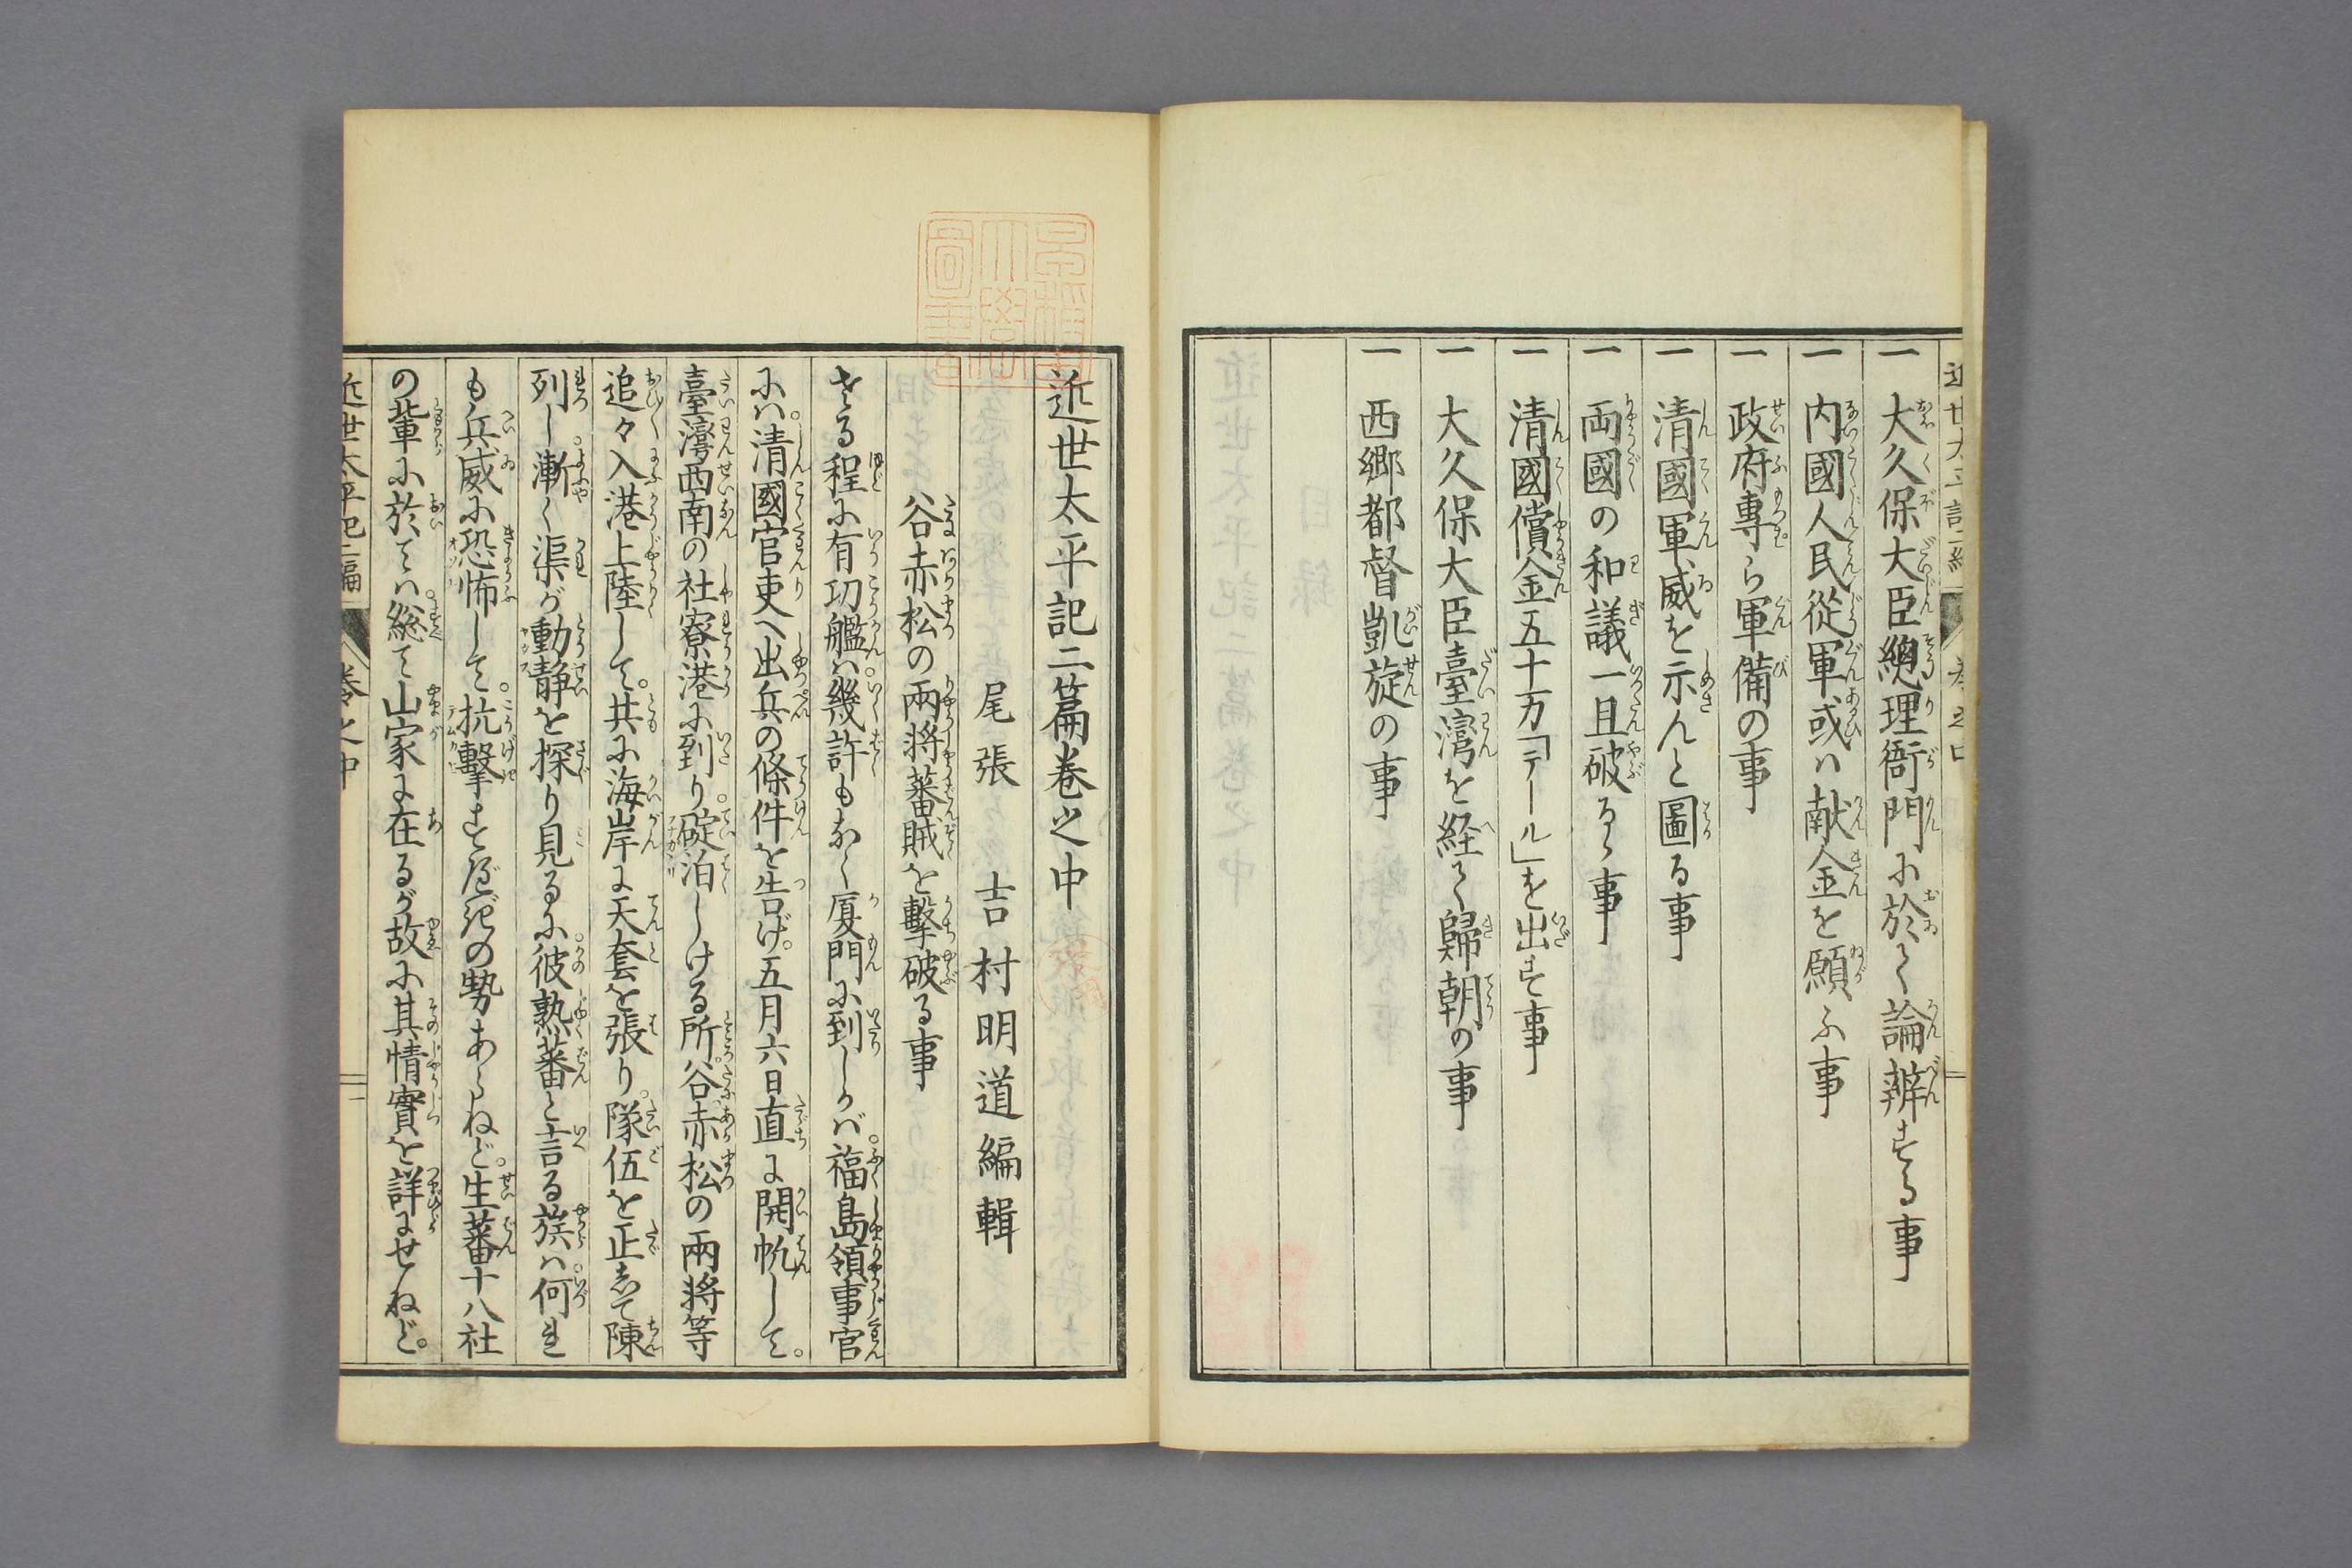 一 大久保大臣總理衙門ふ於て論辨する事
一 内國人民從軍或ハ献金を願ふ事
一 政府專ら軍備の事
一 清國軍威を示んと圖る事
一 両國の和議一旦破るゝ事
一 清國償金五十万「テール」を出す事
一 大久保大臣臺灣を経て歸朝の事
一 西郷都督凱旋の事
近世太平記二篇卷之中
尾張 吉村明道編輯
谷赤松の兩将蕃賊を擊破る事
さる程ふ有功艦ハ。幾許もなく厦門ふ到しかバ。福島領事官
ふハ。清國官吏へ出兵の條件を告げ。五月六日直に開帆して。
臺灣西南の社寮港ふ到り。碇泊しける所。谷赤松の兩将等
追々入港上陸して。共ふ海岸に天套を張り。隊伍を正志て陳
列し。漸く渠が動静を探り見るふ。彼熟蕃と言る族ハ。何れ
も兵威ふ恐怖して。抗擊すべきの勢あらねど。生蕃十八社
の輩ふ於てハ。総て山家に在るが故ふ其情實を詳にせねど。
近世太平記二編 卷之中